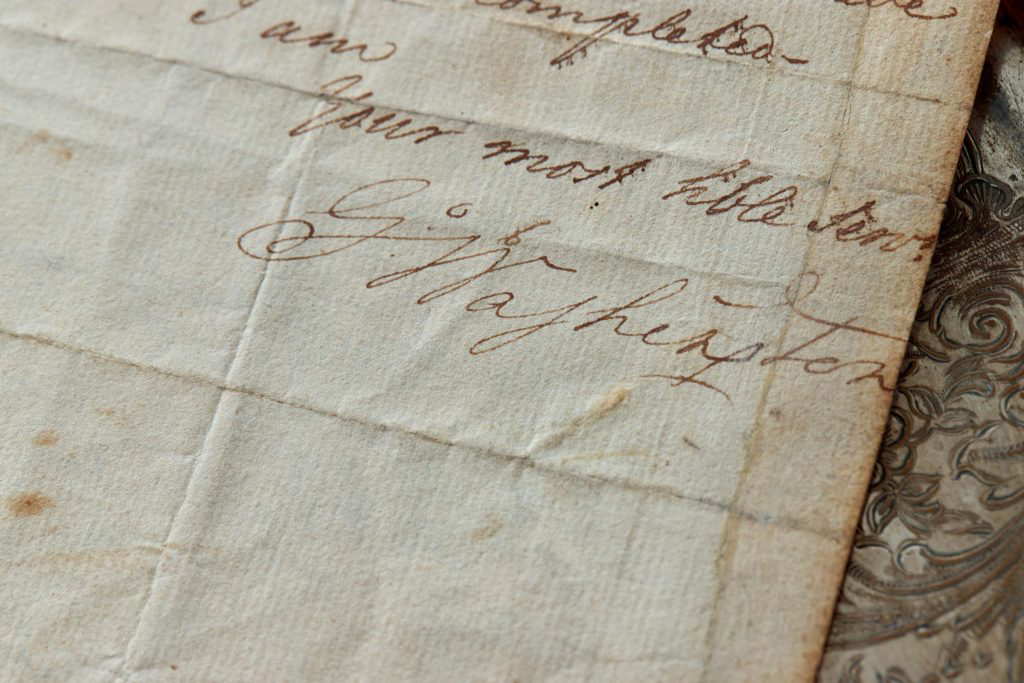 completed-
I am
Your most hble Serv.
G:Washington